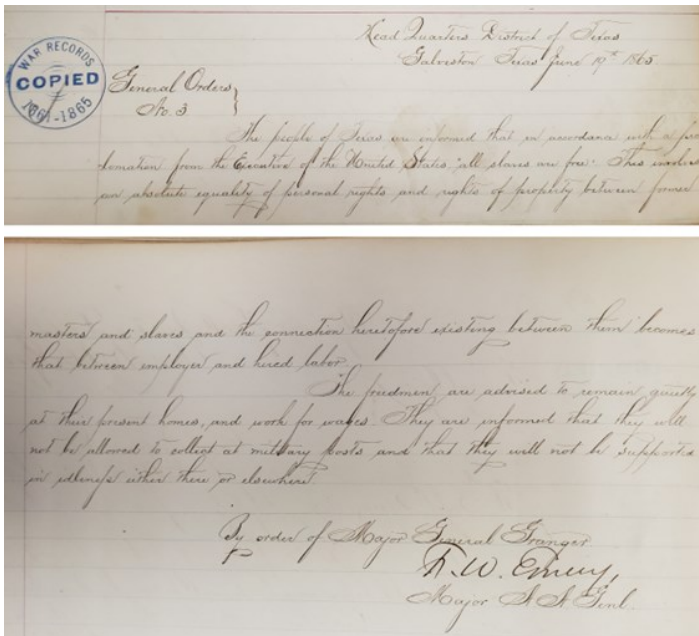 WAR RECORDS
COPIED
1861-1865
Head Quarters District of Texas
Galveston Texas June 19th 1865.
General Orders
No. 3
The people of Texas are informed that in accordance with a pro
clamation from the Executive of the United States, "all slaves are free". This involves
an absolute equality of personal rights and rights of property between former
masters and slaves and the connection heretofore existing between them becomes
that between employer and hired labor.
The freedmen are advised to remain quietly
at their present homes, and work for wages. They are informed that they will
not be allowed to collect at military posts and that they will not be supported
in idleness either there or elsewhere.
By order of Major General Granger
F.W. Emery,
Major A. A. Genl.